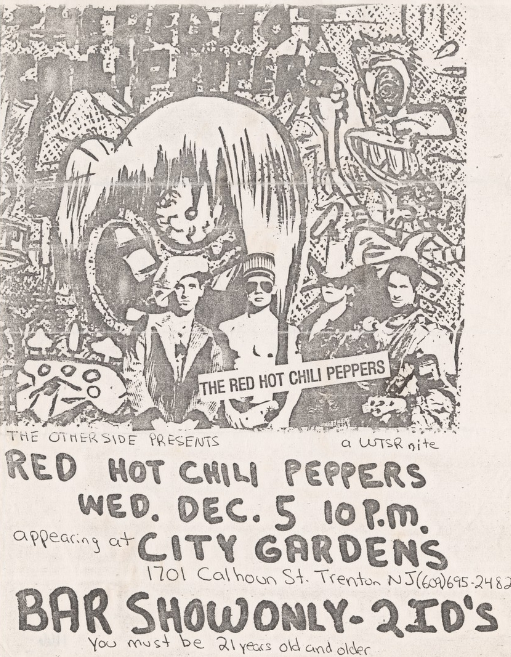 RED HOT
CHILI PEPPERS
THE RED HOT CHILI PEPPERS
THE OTHERSIDE PRESENTS a WTSR nite
RED HOT CHILI PEPPERS
WED. DEC. 5 10 P.M.
appearing at CITY GARDENS
1701 Calhoun St. Trenton NJ (609)695-2482
BAR SHOW ONLY - 2 ID'S
You must be 21 years old and older